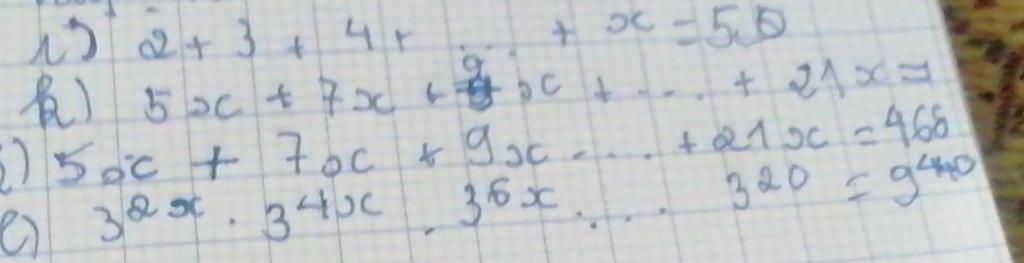 1) 2 + 3 + 4 + .... + x = 550
h) 5x + 7x + 9x + .... + 21x =
i) 5x + 7x + 9x .... + 21x = 468
l) 3^2x . 3^4x . 3^6x .... 3^20 = 9^440